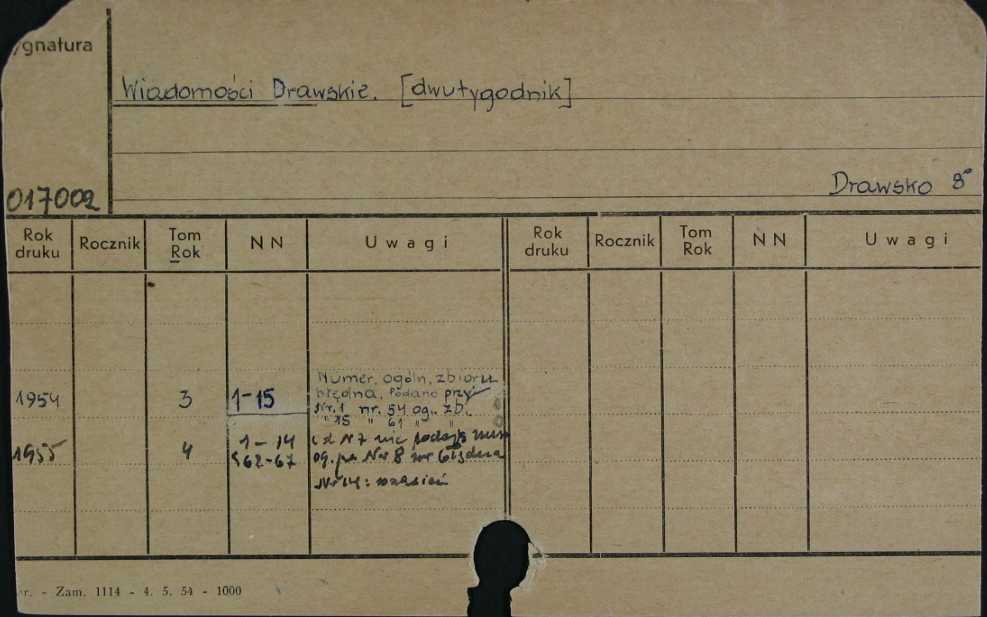 ygnatura
Wiadomości Drawskie. [dwutygodnik]
017002
Drawsko 8°
Rok druku Rocznik Tom Rok NN Uwagi Rok druku Rocznik Tom Rok NN Uwagi
Numer. ogóln. zbioru
1954 3 1-15 błędna. Podano przy
nr. 1 nr. 54 og. zb.
" 15 " 61 " "
1955 4 1-14
62-67 og. po Nr 8
Nr 14: wrzesień
r. - Zam. 1114 - 4. 5. 54 - 1000